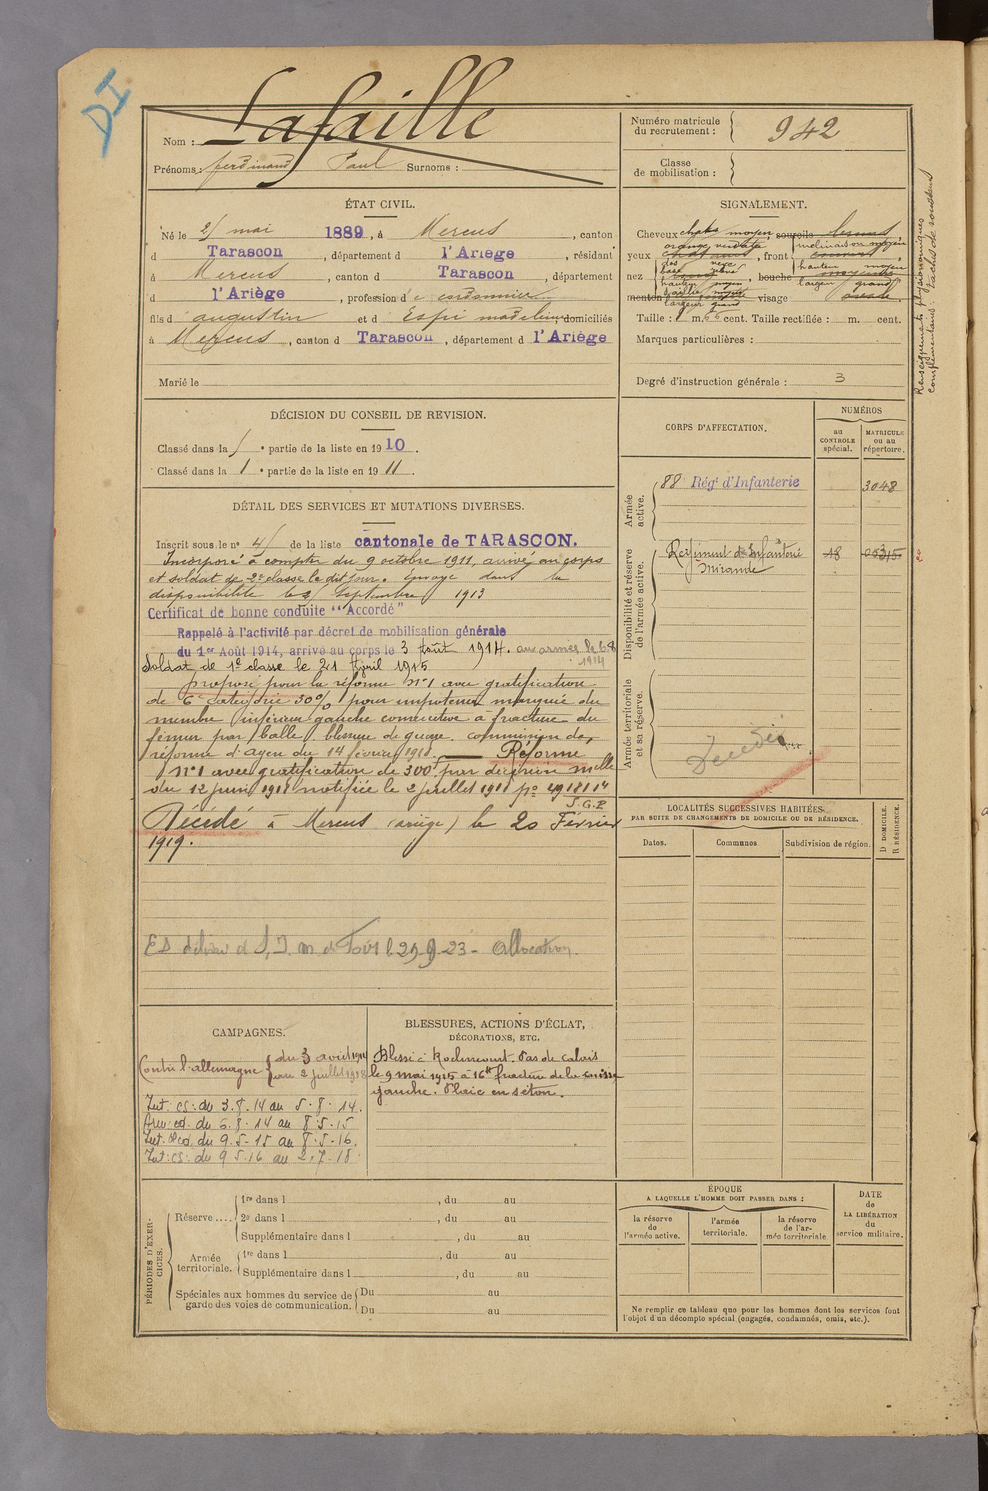 DI
Nom : Lafaille
Prénoms : ferdinand Paul Surnoms :
Numéro matricule du recrutement : 942
Classe de mobilisation :
ÉTAT CIVIL.
Né le 2 mai 1889, à Mercus, canton
d Tarascon, département d l'Ariège, résidant
à Mercus, canton d Tarascon, département
d l'Ariège, profession d cordonnier
fils d augustin et d Espi madeleine domiciliés
à Mercus, canton d Tarascon, département d l'Ariège
Marié le
SIGNALEMENT.
Cheveux chat moyen sourcils
yeux orange verdâtre, front inclinaison moyen
hauteur moyen
largeur grand
nez dos
base
hauteur moyen
saillie moyen
largeur grand
bouche moyenne
menton visage ovale
Taille : 1 m. 66 cent. Taille rectifiée : m. cent.
Marques particulières :
Degré d'instruction générale : 3
Renseignements physionomiques
complémentaires : taches de rousseur
DÉCISION DU CONSEIL DE REVISION.
Classé dans la 1 e partie de la liste en 1910.
Classé dans la 1 e partie de la liste en 1911.
DÉTAIL DES SERVICES ET MUTATIONS DIVERSES.
Inscrit sous le n° 4 de la liste cantonale de TARASCON.
Incorporé à compter du 9 octobre 1911, arrivé au corps
et soldat de 2e classe le dit jour. Envoyé dans la
disponibilité le Septembre 1913
Certificat de bonne conduite "Accordé"
Rappelé à l'activité par décret de mobilisation générale
du 1er Août 1914, arrivé au corps le 3 Août 1914. aux armées le 6-8
1914
Soldat de 1e classe le 21 Avril 1915
Proposé pour la réforme n°1 avec gratification
de 6e catégorie 30% pour impotence marquée du
membre inférieur gauche consécutive à fracture du
fémur par balle blessure de guerre. Commission de
réforme d'Agen du 14 février 1918. — Réformé
n°1 avec gratification de 300f par décision mlle
du 12 juin 1918 notifiée le 2 juillet 1918
S.G.P.
Décédé à Mercus (ariège) le 20 Février
1919.
29-9-23 - Allocation
CORPS D'AFFECTATION.
NUMÉROS
au CONTROLE spécial.
MATRICULE ou au répertoire.
Armée active.
88 Régt d'Infanterie 3048
Disponibilité et réserve de l'armée active.
Régiment d'Infanterie 18
Mirande
Armée territoriale et sa réserve.
Décédé
LOCALITÉS SUCCESSIVES HABITÉES
PAR SUITE DE CHANGEMENTS DE DOMICILE OU DE RÉSIDENCE.
Dates. Communes Subdivision de région. D DOMICILE. R RÉSIDENCE.
CAMPAGNES.
Contre l'allemagne du 3 août 1914
au 2 juillet 1918
Int. cs: du 3.8.14 au 5.8.14.
Arm. ed. du 6.8.14 au 8.5.15
Int. Bed. du 9.5.15 au 8.5.16.
Int. cs: du 9.5.16 au 2.7.18.
BLESSURES, ACTIONS D'ÉCLAT,
DÉCORATIONS, ETC.
Blessé à Roclincourt - Pas de Calais
le 9 mai 1915 à 16h fracture de la cuisse
gauche. Plaie en séton.
PÉRIODES D'EXERCICES.
Réserve ....
1re dans l , du au
2e dans l , du au
Supplémentaire dans l , du au
Armée territoriale.
1re dans l , du au
Supplémentaire dans l , du au
Spéciales aux hommes du service de garde des voies de communication.
Du au
Du au
ÉPOQUE
A LAQUELLE L'HOMME DOIT PASSER DANS :
la réserve de l'armée active.
l'armée territoriale.
la réserve de l'armée territoriale
DATE DE LA LIBÉRATION du service militaire.
Ne remplir ce tableau que pour les hommes dont les services font
l'objet d'un décompte spécial (engagés, condamnés, omis, etc.).